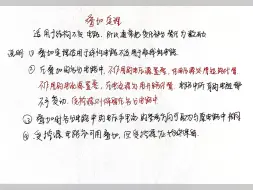 叠加定理
适用于结构不变电路，所以电源把变化部分替代为激励
说明 ① 叠加定理适用于线性电路不适用于非线性电路.
② 在叠加的各分电路中
不作用的电压源置零，在电压源处用短路代替
不作用的电流源置零，在电流源处用开路代替，电路中所有的电阻都
不予更动，受控源则保留在各分电路中
③ 叠加时各分电路中的电压和电流的参考方向可取为与原电路中相同
④ 受控源电路亦可用叠加，但受控源应始终保留.